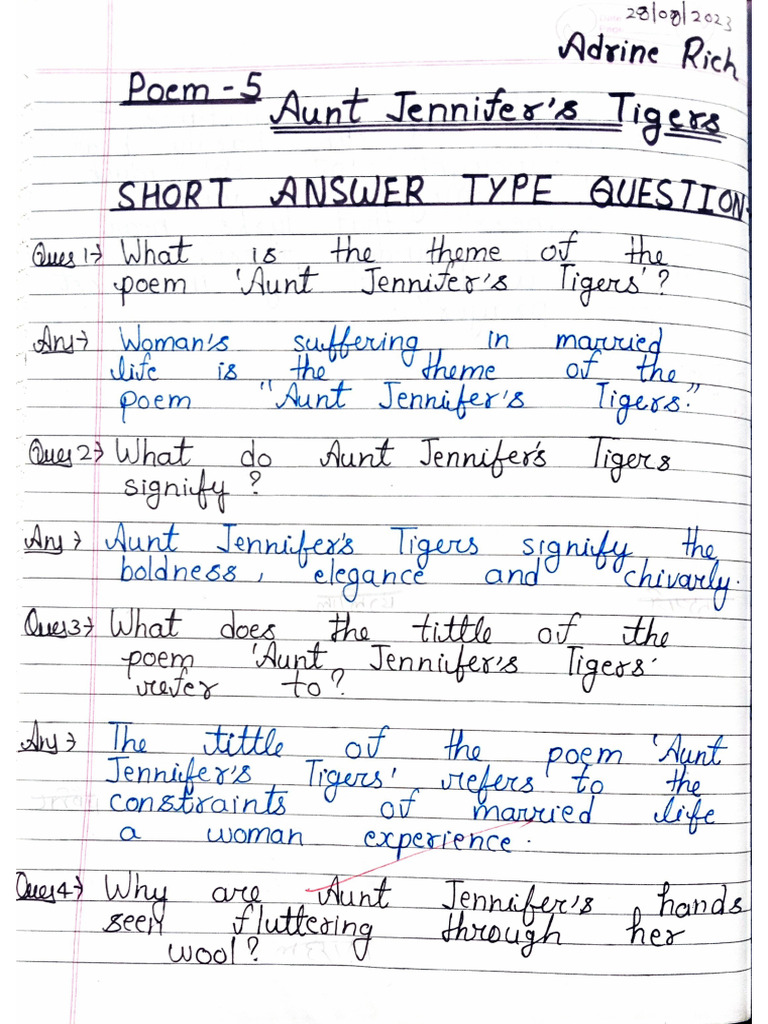 28/08/2023
Adrine Rich
Poem - 5
Aunt Jennifer's Tigers
SHORT ANSWER TYPE QUESTION.
Ques 1→ What is the theme of the
poem 'Aunt Jennifer's Tigers'?
Ans→ Woman's suffering in married
life is the theme of the
poem "Aunt Jennifer's Tigers."
Ques 2→ What do Aunt Jennifer's Tigers
signify?
Ans→ Aunt Jennifer's Tigers signify the
boldness, elegance and chivarly.
Ques 3→ What does the tittle of the
poem 'Aunt Jennifer's Tigers'
refer to?
Ans→ The tittle of the poem 'Aunt
Jennifer's Tigers' refers to the
constraints of married life
a woman experience.
Ques 4→ Why are Aunt Jennifer's hands
seen fluttering through her
wool?